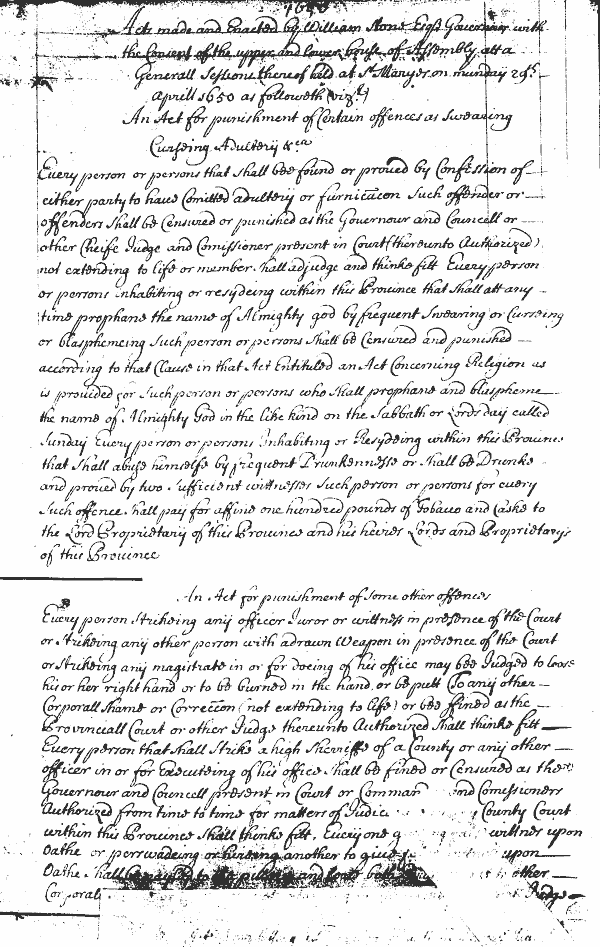 1650
Acts made and Enacted by William Stone Esqr Governor with
the Consent of the upper and lower house of Assembly att a
Generall Sessions thereof held at St Maryes on munday 29th
Aprill 1650 as followeth (vizt)
An Act for punishment of Certain offences as Swearing
Curseing Adultery &ca
Every person or persons that shall bee found or proved by Confession of
either party to have Comitted adultery or furnicacon Such offender or
offenders Shall be Censured or punished as the Governour and Councell or
other Cheife Judge and Comissioner present in Court (thereunto Authorized)
not extending to life or member shall adjudge and thinke fitt Every person
or persons inhabiting or resydeing within this Province that shall att any
time prophane the name of Almighty god by frequent Swearing or Curseing
or blasphemeing Such person or persons Shall be Censured and punished
according to that Clause in that Act Entituled an Act Concerning Religion as
is provided for Such person or persons who Shall prophane and blaspheme
the name of Almighty God in the like kind on the Sabbath or Lords day called
Sunday Every person or persons Inhabiting or Resydeing within this Province
that Shall abuse himselfe by frequent Drunkennesse or Shall be Drunke
and proved by two Sufficient wittnesses Such person or persons for every
Such offence shall pay for a ffine one hundred pounds of Tobacco and Caske to
the Lord Proprietary of this Province and his heires Lords and Proprietarys
of this Province
An Act for punishment of Some other offences
Every person Strikeing any officer Juror or wittness in presence of the Court
or Strikeing any other person with a drawn Weapon in presence of the Court
or Strikeing any magistrate in or for doeing of his office may bee Judged to loose
his or her right hand or to be burned in the hand or be putt To any other
Corporall Shame or Correccon (not extending to life) or bee ffined as the
Provinciall Court or other Judge thereunto Authorized Shall thinke fitt
Every person that shall Strike a high Sherriffe of a County or any other
officer in or for Executeing of his office Shall be fined or Censured as the
Governour and Councell present in Court or Comman and Comissioners
Authorized from time to time for matters of Judic County Court
within this Province Shall thinke fitt. Every one g wittnes upon
Oathe or perswadeing or hireing another to give upon
Oathe shall be nayled to the pillory and loose both other
Corporal Judge